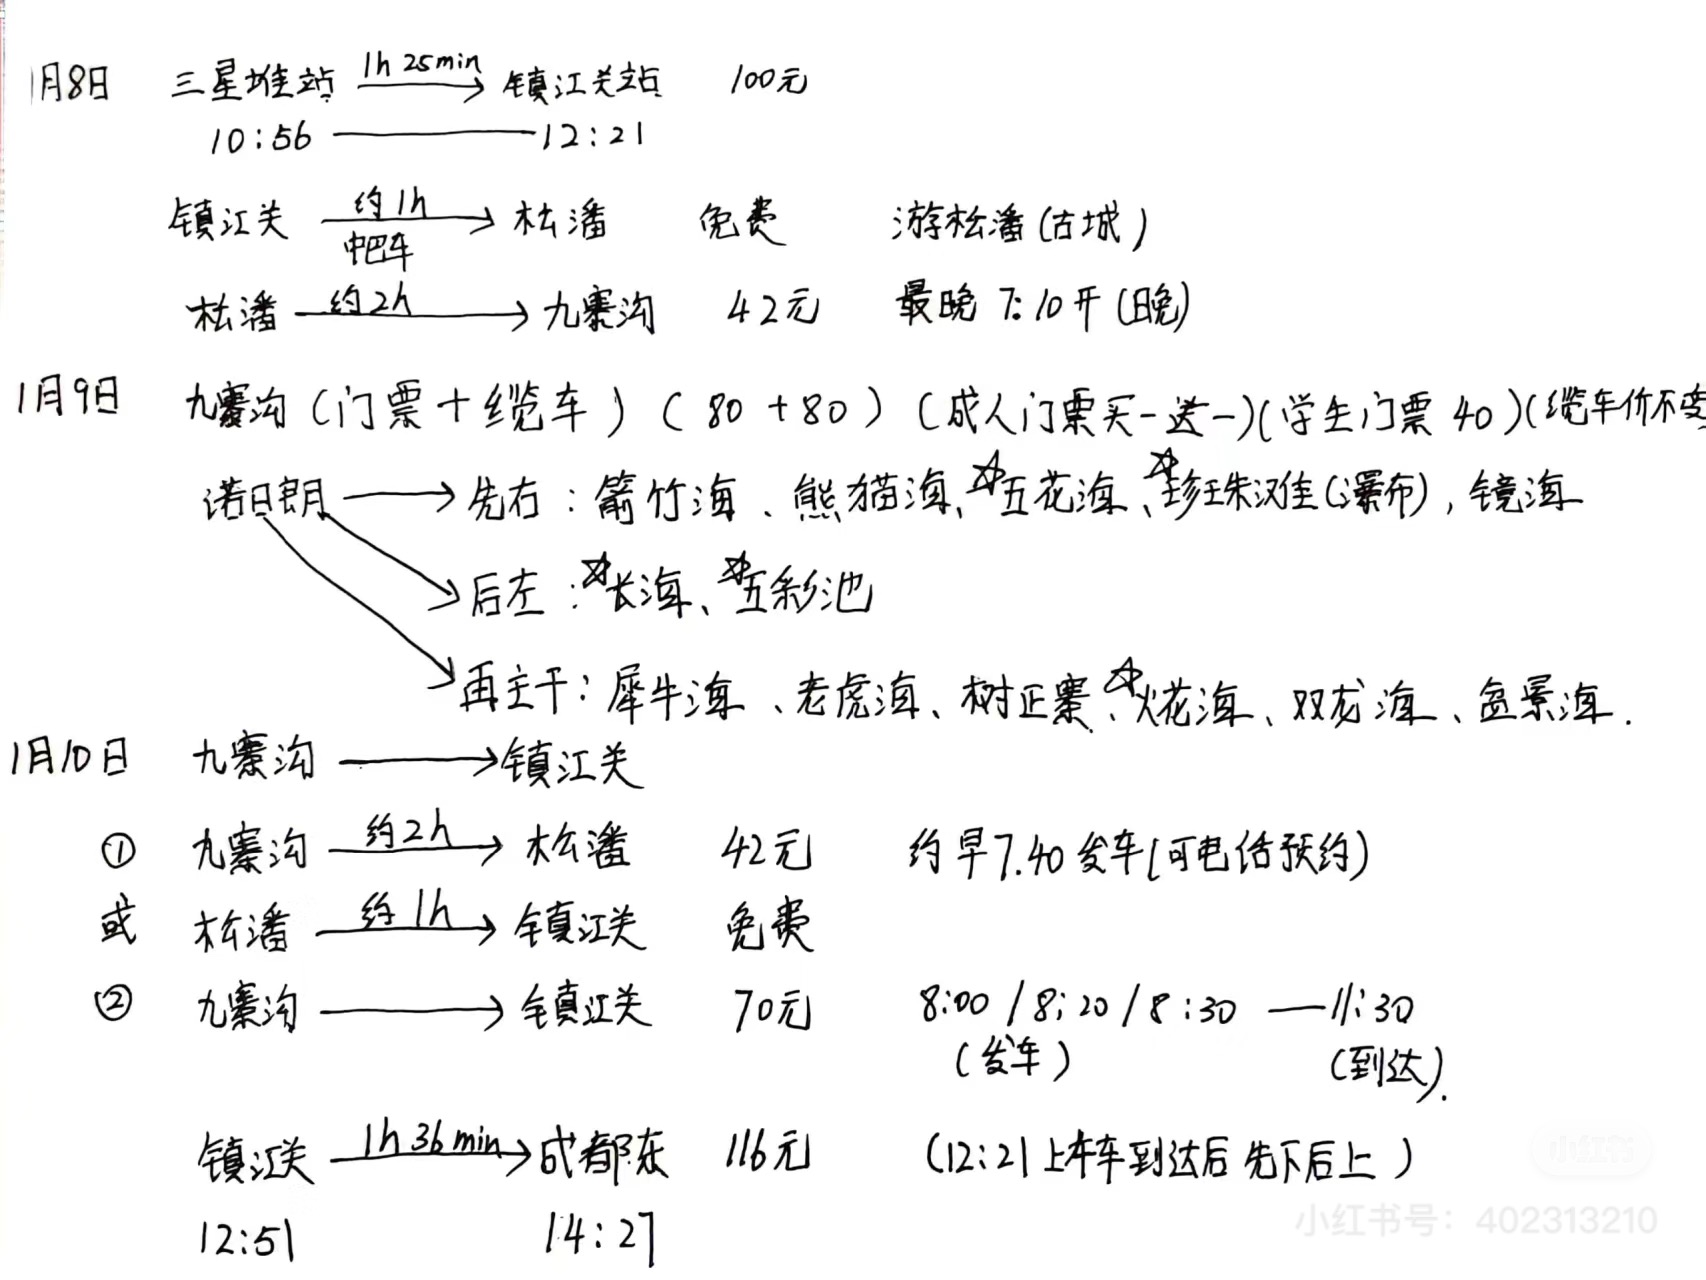 1月8日 三星堆站 1h 25min 镇江关站 100元
10:56 12:21
镇江关 约1h 中巴车 松潘 免费 游松潘(古城)
松潘 约2h 九寨沟 42元 最晚 7:10开(晚)
1月9日 九寨沟(门票+缆车)(80+80)(成人门票买一送一)(学生门票 40)(缆车价不变
诺日朗 先右:箭竹海、熊猫海、☆五花海、☆珍珠滩(瀑布),镜海
后左:☆长海、☆五彩池
再主干:犀牛海、老虎海、树正寨、☆火花海、双龙海、盆景海.
1月10日 九寨沟 镇江关
① 九寨沟 约2h 松潘 42元 约早7.40发车(可电话预约)
或 松潘 约1h 镇江关 免费
② 九寨沟 镇江关 70元 8:00/8:20/8:30 — 11:30
(发车) (到达).
镇江关 1h 36min 成都东 116元 (12:21上车到达后先下后上)
12:51 14:27
小红书
小红书号:402313210